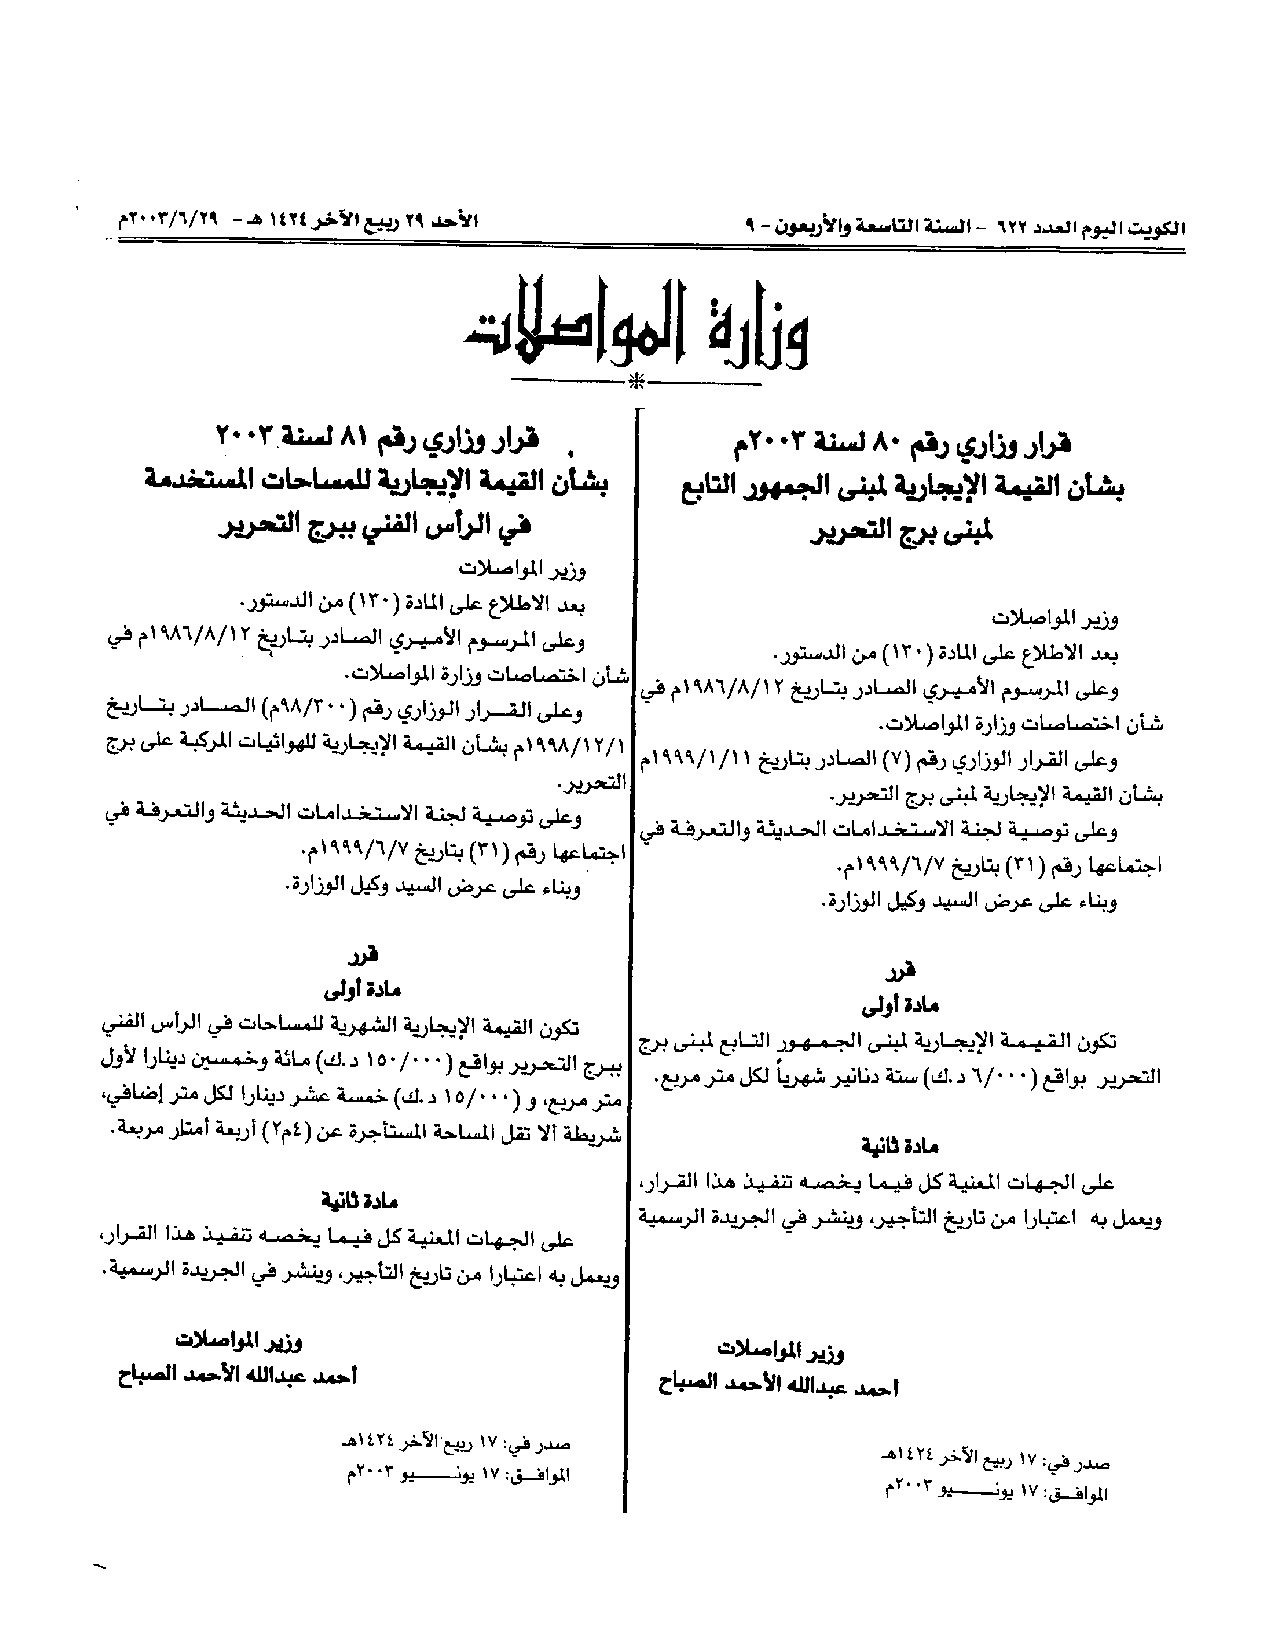 الكويت اليوم العدد ٦٢٢ - السنة التاسعة والأربعون - ٩
الأحد ٢٩ ربيع الآخر ١٤٢٤ هـ - ٢٠٠٣/٦/٢٩م
وزارة المواصلات
قرار وزاري رقم ٨٠ لسنة ٢٠٠٣م
بشأن القيمة الإيجارية لمبنى الجمهور التابع
لمبنى برج التحرير
وزير المواصلات
بعد الاطلاع على المادة (١٣٠) من الدستور.
وعلى المرسوم الأميري الصادر بتاريخ ١٩٨٦/٨/١٢م في
شأن اختصاصات وزارة المواصلات.
وعلى القرار الوزاري رقم (٧) الصادر بتاريخ ١٩٩٩/١/١١م
بشأن القيمة الإيجارية لمبنى برج التحرير.
وعلى توصية لجنة الاستخدامات الحديثة والتعرفة في
اجتماعها رقم (٣١) بتاريخ ١٩٩٩/٦/٧م.
وبناء على عرض السيد وكيل الوزارة.
قرر
مادة أولى
تكون القيمة الإيجارية لمبنى الجمهور التابع لمبنى برج
التحرير بواقع (٦/٠٠٠ د.ك) ستة دنانير شهرياً لكل متر مربع.
مادة ثانية
على الجهات المعنية كل فيما يخصه تنفيذ هذا القرار،
ويعمل به اعتبارا من تاريخ التأجير، وينشر في الجريدة الرسمية
وزير المواصلات
احمد عبدالله الأحمد الصباح
صدر في: ١٧ ربيع الآخر ١٤٢٤هـ
الموافق: ١٧ يونيو ٢٠٠٣م
قرار وزاري رقم ٨١ لسنة ٢٠٠٣
بشأن القيمة الإيجارية للمساحات المستخدمة
في الرأس الفني ببرج التحرير
وزير المواصلات
بعد الاطلاع على المادة (١٣٠) من الدستور.
وعلى المرسوم الأميري الصادر بتاريخ ١٩٨٦/٨/١٢م في
شأن اختصاصات وزارة المواصلات.
وعلى القرار الوزاري رقم (٩٨/٣٠٠م) الصادر بتاريخ
١٩٩٨/١٢/١م بشأن القيمة الإيجارية للهوائيات المركبة على برج
التحرير.
وعلى توصية لجنة الاستخدامات الحديثة والتعرفة في
اجتماعها رقم (٣١) بتاريخ ١٩٩٩/٦/٧م.
وبناء على عرض السيد وكيل الوزارة.
قرر
مادة أولى
تكون القيمة الإيجارية الشهرية للمساحات في الرأس الفني
ببرج التحرير بواقع (١٥٠/٠٠٠ د.ك) مائة وخمسين دينارا لأول
متر مربع، و (١٥/٠٠٠ د.ك) خمسة عشر دينارا لكل متر إضافي،
شريطة ألا تقل المساحة المستأجرة عن (٤م٢) أربعة أمتار مربعة.
مادة ثانية
على الجهات المعنية كل فيما يخصه تنفيذ هذا القرار،
ويعمل به اعتبارا من تاريخ التأجير، وينشر في الجريدة الرسمية.
وزير المواصلات
احمد عبدالله الأحمد الصباح
صدر في: ١٧ ربيع الآخر ١٤٢٤هـ
الموافق: ١٧ يونيو ٢٠٠٣م